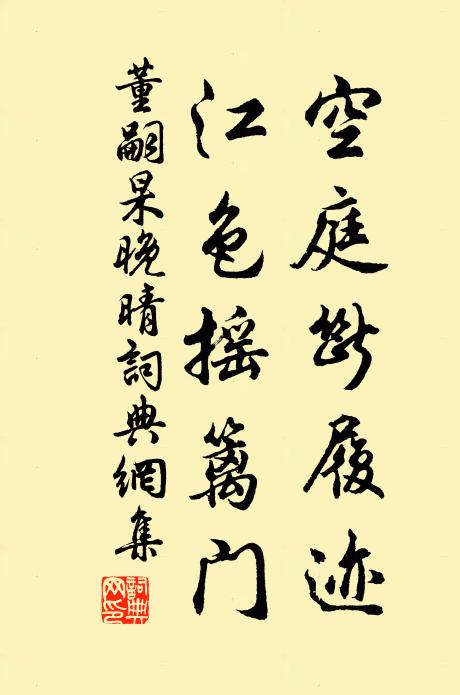 空庭斷履迹
江色摇籬門
董嗣杲晚晴詞典網集
詞典网印